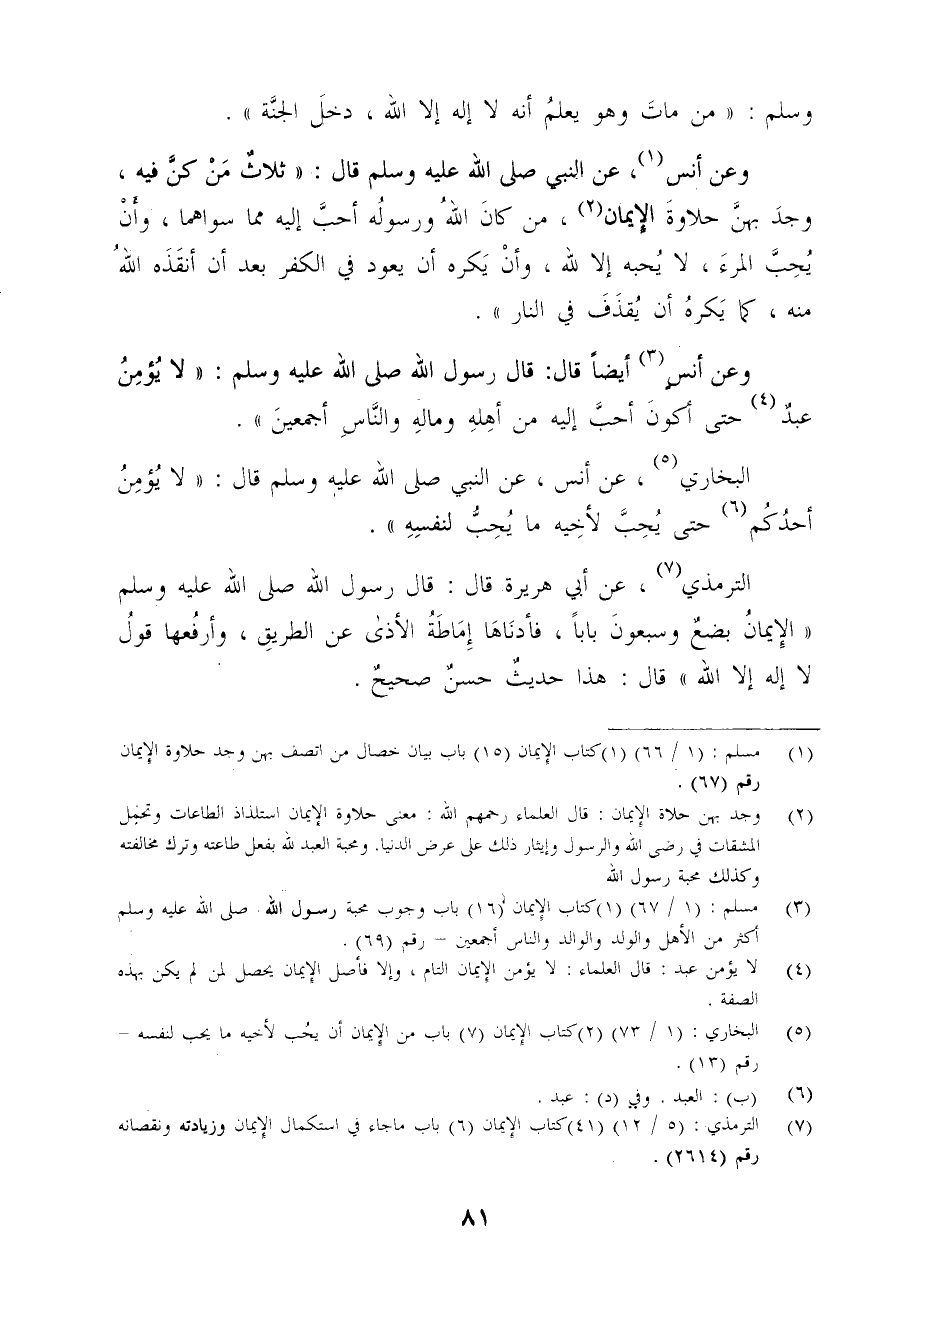 وسلم : « من ماتَ وهو يعلمُ أنه لا إله إلا الله ، دخلَ الجنَّة » .
وعن أنس(١)، عن النبي صلى الله عليه وسلم قال : « ثلاثٌ مَنْ كنَّ فيه ،
وجدَ بهنَّ حلاوةَ الإيمان(٢) ، من كانَ اللهُ ورسولُه أحبَّ إليه مما سواهما ، وأَنْ
يُحِبَّ المرءَ ، لا يُحبه إلا لله ، وأنْ يَكره أن يعود في الكفر بعد أن أنقَذَه اللهُ
منه ، كما يَكرهُ أن يُقذَفَ في النار » .
وعن أنس(٣) أيضاً قال: قال رسول الله صلى الله عليه وسلم : « لا يُؤمِنُ
عبدٌ(٤) حتى أكونَ أحبَّ إليه من أهِلهِ ومالهِ والنَّاسِ أجمعينَ » .
البخاري(٥) ، عن أنس ، عن النبي صلى الله عليه وسلم قال : « لا يُؤمِنُ
أحدُكُم(٦) حتى يُحِبَّ لأخيه ما يُحِبُّ لنفسِهِ » .
الترمذي(٧) ، عن أبي هريرة قال : قال رسول الله صلى الله عليه وسلم
« الإيمانُ بضعٌ وسبعونَ باباً ، فأدنَاهَا إِمَاطَةُ الأذىٰ عن الطريقِ ، وأرفُعها قولُ
لا إله إلا الله » قال : هذا حديثٌ حسنٌ صحيحٌ .
(١) مسلم : (١ / ٦٦) (١)كتاب الإيمان (١٥) باب بيان خصال من اتصف بهن وجد حلاوة الإيمان
رقم (٦٧) .
(٢) وجد بهن حلاة الإيمان : قال العلماء رحمهم الله : معنى حلاوة الإيمان استلذاذ الطاعات وتحمّل
المشقات في رضى الله والرسول وإيثار ذلك على عرض الدنيا. ومحبة العبد لله بفعل طاعته وترك مخالفته
وكذلك محبة رسول الله
(٣) مسلم : (١ / ٦٧) (١)كتاب الإيمان (١٦) باب وجوب محبة رسول الله صلى الله عليه وسلم
أكثر من الأهل والولد والوالد والناس أجمعين – رقم (٦٩) .
(٤) لا يؤمن عبد : قال العلماء : لا يؤمن الإيمان التام ، وإلا فأصل الإيمان يحصل لمن لم يكن بهذه
الصفة .
(٥) البخاري : (١ / ٧٣) (٢)كتاب الإيمان (٧) باب من الإيمان أن يحُب لأخيه ما يحب لنفسه –
رقم (١٣) .
(٦) (ب) : العبد . وفي (د) : عبد .
(٧) الترمذي : (٥ / ١٢) (٤١)كتاب الإيمان (٦) باب ماجاء في استكمال الإيمان وزيادته ونقصانه
رقم (٢٦١٤) .
٨١